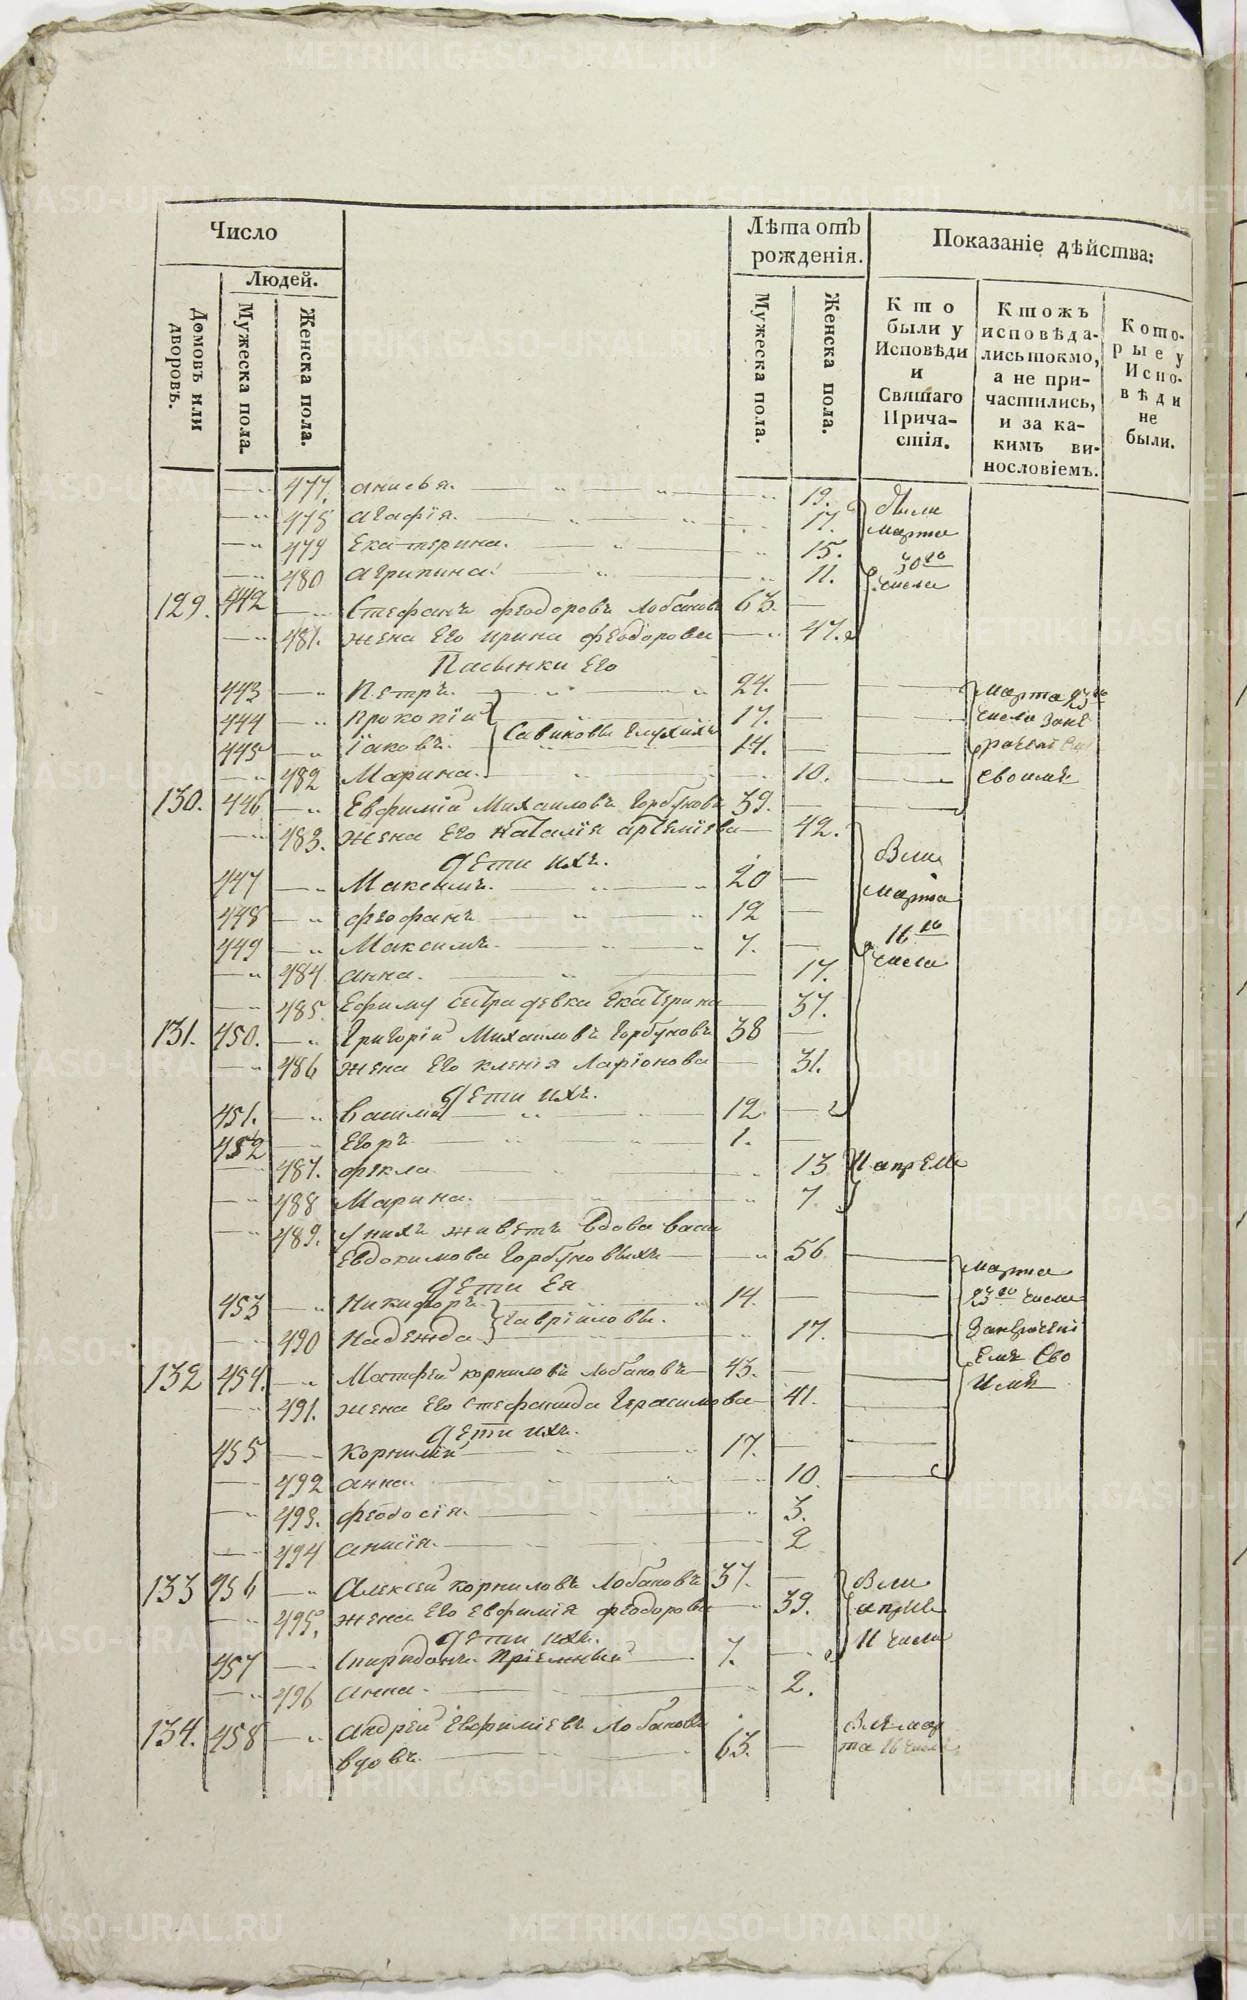 Число
Лѣта отъ рожденія.
Показаніе дѣйства:
Людей.
Домовъ или дворовъ.
Мужеска пола.
Женска пола.
Мужеска пола.
Женска пола.
Кто были у Исповѣди и Святаго Причастія.
Ктожъ исповѣдались токмо, а не причастились, и за какимъ винословіемъ.
Которые у Исповѣди не были.
477. анисья. 19. были
478 агафія. 17. марта
479 Екатерина. 15. 30го
480 агрипина. 11. числа
129. 442 Стефанъ феодоровъ Лобановъ 63.
481. жена Его ирина феодорова 47.
Пасынки Его
443 Петръ. 24. марта 23го
444 Прокопій 17. числа
Савиновы
445 Іаковъ. 14.
482 Марина. 10. своимъ
130. 446 Евфимій Михаиловъ Горбуновъ 39.
483. жена Его Наталія артеміева 42.
дети ихъ. Были
447 Максимъ. 20 марта
448 феофанъ 12
449 Максимъ. 7. 16го
484 анна. 17. числа
485. Ефиму сестра девка Екатерина 37.
131. 450. Григорій Михаиловъ Горбуновъ 38
486 жена Его ксенія Ларіонова 31.
дети ихъ.
451. Василій 12
452 Егоръ 1.
487. фекла 13 11 апреля
488 Марина. 7.
489. у нихъ живетъ вдова васса
Евдокимова Горбуновыхъ 56
дети Ея марта
453 Никифоръ 14. 23го числа
Гавриловы.
490 Надежда 17.
132 454. Матфей корниловъ Лобановъ 43.
491. жена Его Стефанида Герасимова 41.
дети ихъ.
455 Корнилій 17.
492 анна. 10.
493. феодосія. 3.
494 анисія. 2
133 456 Алексей корниловъ Лобановъ 37. Были
495. жена Его Евфимія феодорова 39. апреля
дети ихъ. 11 числа
457 Спиридонъ Пріемный 7.
496 анна. 2.
134. 458 андрей Евфиміевъ Лобановъ мар
вдовъ. 63. та 16 числа
METRIKI.GASO-URAL.RU